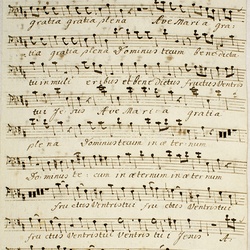 gratia gratia plena Ave Maria gra
tia gratia plena Dominus tecum benedicta
tu in muli eribus et benedictus fructus ventris
tui Jesus Ave Maria gratia
plena Dominus tecum in æternum
Dominus tecum in æternum in æternum
fructus ventris tui fructus ventris tui
fructus ventris tui ventris tui Jesus